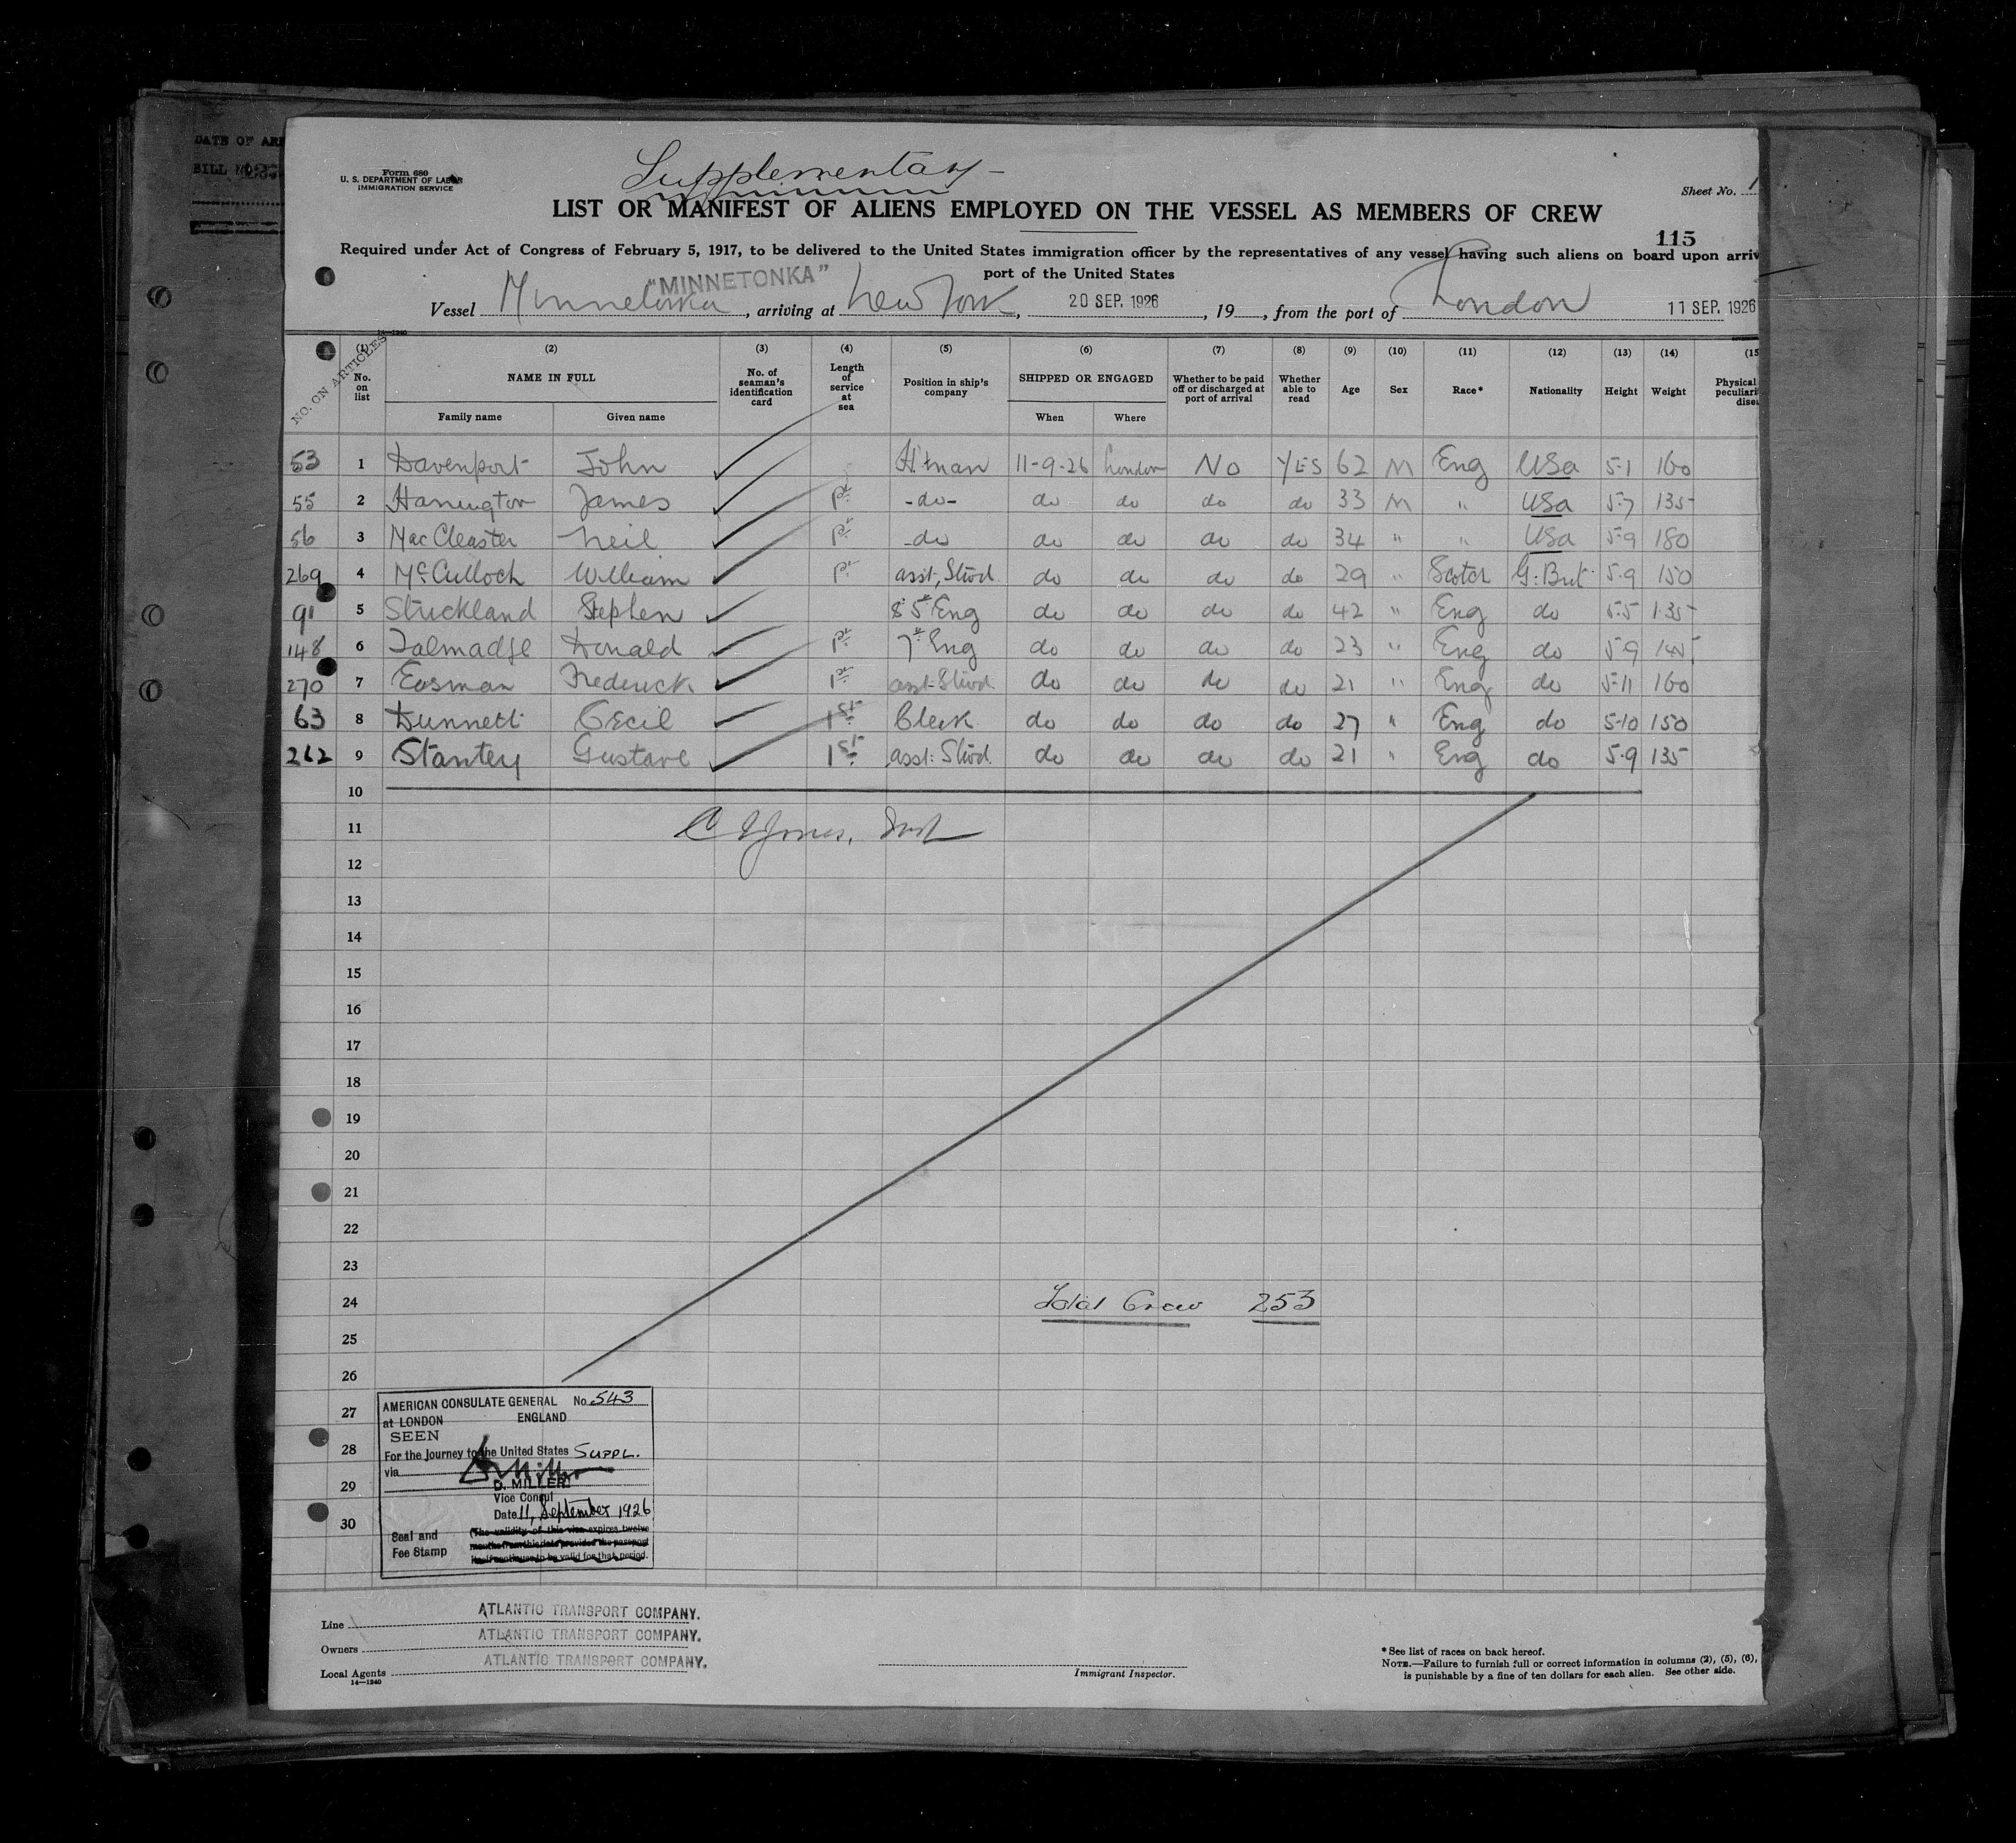 DATE OF ARR
BILL NO.
Form 680
U. S. DEPARTMENT OF LABOR
IMMIGRATION SERVICE
Supplementary
Sheet No. 1
LIST OR MANIFEST OF ALIENS EMPLOYED ON THE VESSEL AS MEMBERS OF CREW
115
Required under Act of Congress of February 5, 1917, to be delivered to the United States immigration officer by the representatives of any vessel having such aliens on board upon arriv
port of the United States
"MINNETONKA"
Vessel Minnetonka, arriving at New York, 20 SEP. 1926, 19, from the port of London 11 SEP. 1926
14—1240
NO. ON ARTICLES
(1) (2) (3) (4) (5) (6) (7) (8) (9) (10) (11) (12) (13) (14) (15
No. on list NAME IN FULL No. of seaman's identification card Length of service at sea Position in ship's company SHIPPED OR ENGAGED Whether to be paid off or discharged at port of arrival Whether able to read Age Sex Race* Nationality Height Weight Physical peculiari disea
Family name Given name When Where
53 1 Davenport John H'man 11-9-26 London No YES 62 M Eng USa 5-1 160
55 2 Harrington James -do- do do do do 33 M " USa 5-7 135
56 3 MacCleaster Neil -do do do do do 34 " " USa 5-9 180
269 4 McCulloch William asst, Stwd. do do do do 29 " Scotch G. Brit 5-9 150
91 5 Strickland Stephen 5 Eng do do do do 42 " Eng do 5-5 135
148 6 Talmadge Donald 7 Eng do do do do 23 " Eng do 5-9 145
270 7 Eosman Frederick asst Stwd. do do do do 21 " Eng do 5-11 160
63 8 Dunnett Cecil 1st Clerk do do do do 27 " Eng do 5-10 150
262 9 Stanley Gustave 1st asst: Stwd. do do do do 21 " Eng do 5-9 135
10
11
12
13
14
15
16
17
18
19
20
21
22
23
24 Total Crew 253
25
26
27
28
29
30
AMERICAN CONSULATE GENERAL No. 543
at LONDON ENGLAND
SEEN
For the journey to the United States SUPPL.
via
D. MILLER
Vice Consul
Date 11, September 1926
Seal and Fee Stamp
(The validity of this visa expires twelve
months from this date provided the passport
itself continues to be valid for that period.
Line ATLANTIC TRANSPORT COMPANY.
Owners ATLANTIC TRANSPORT COMPANY.
Local Agents ATLANTIC TRANSPORT COMPANY.
14—1240
Immigrant Inspector.
* See list of races on back hereof.
NOTE.—Failure to furnish full or correct information in columns (2), (5), (6),
is punishable by a fine of ten dollars for each alien. See other side.